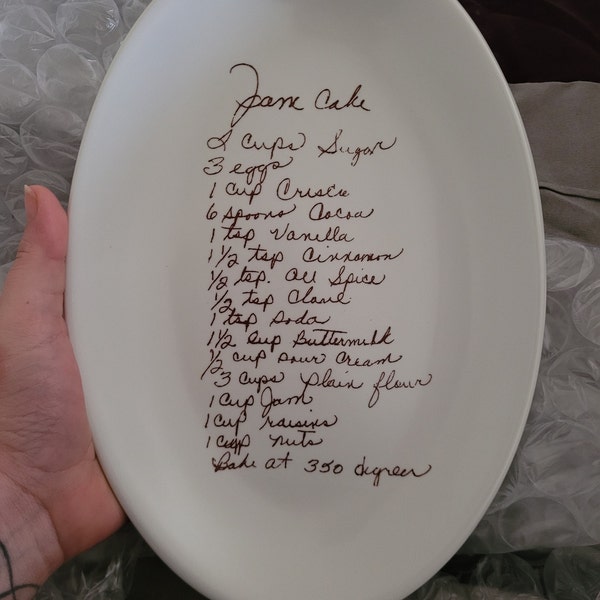 Jam Cake
2 cups Sugar
3 eggs
1 cup Crisco
6 spoons Cocoa
1 tsp Vanilla
1 1/2 tsp Cinnamon
1/2 tsp. All Spice
1/2 tsp Clove
1 tsp soda
1 1/2 cup Buttermilk
1/2 cup sour cream
3 cups plain flour
1 cup Jam
1 cup raisins
1 cup nuts
Bake at 350 degrees